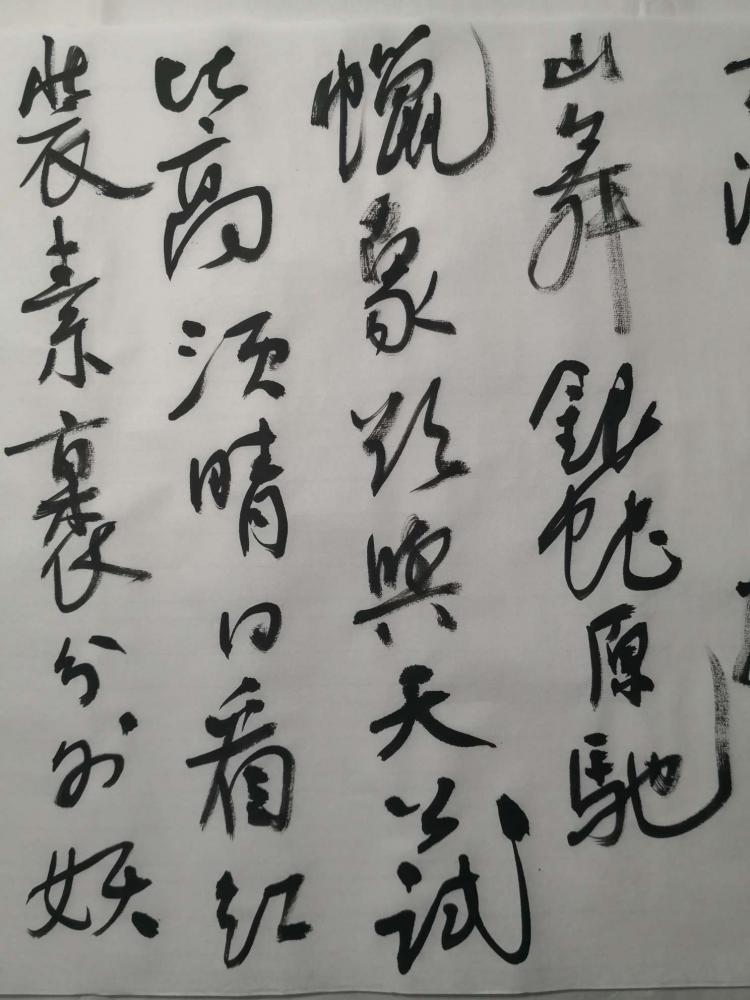 山舞銀蛇原馳
蠟象欲與天公試
比高須晴日看紅
裝素裹分外妖